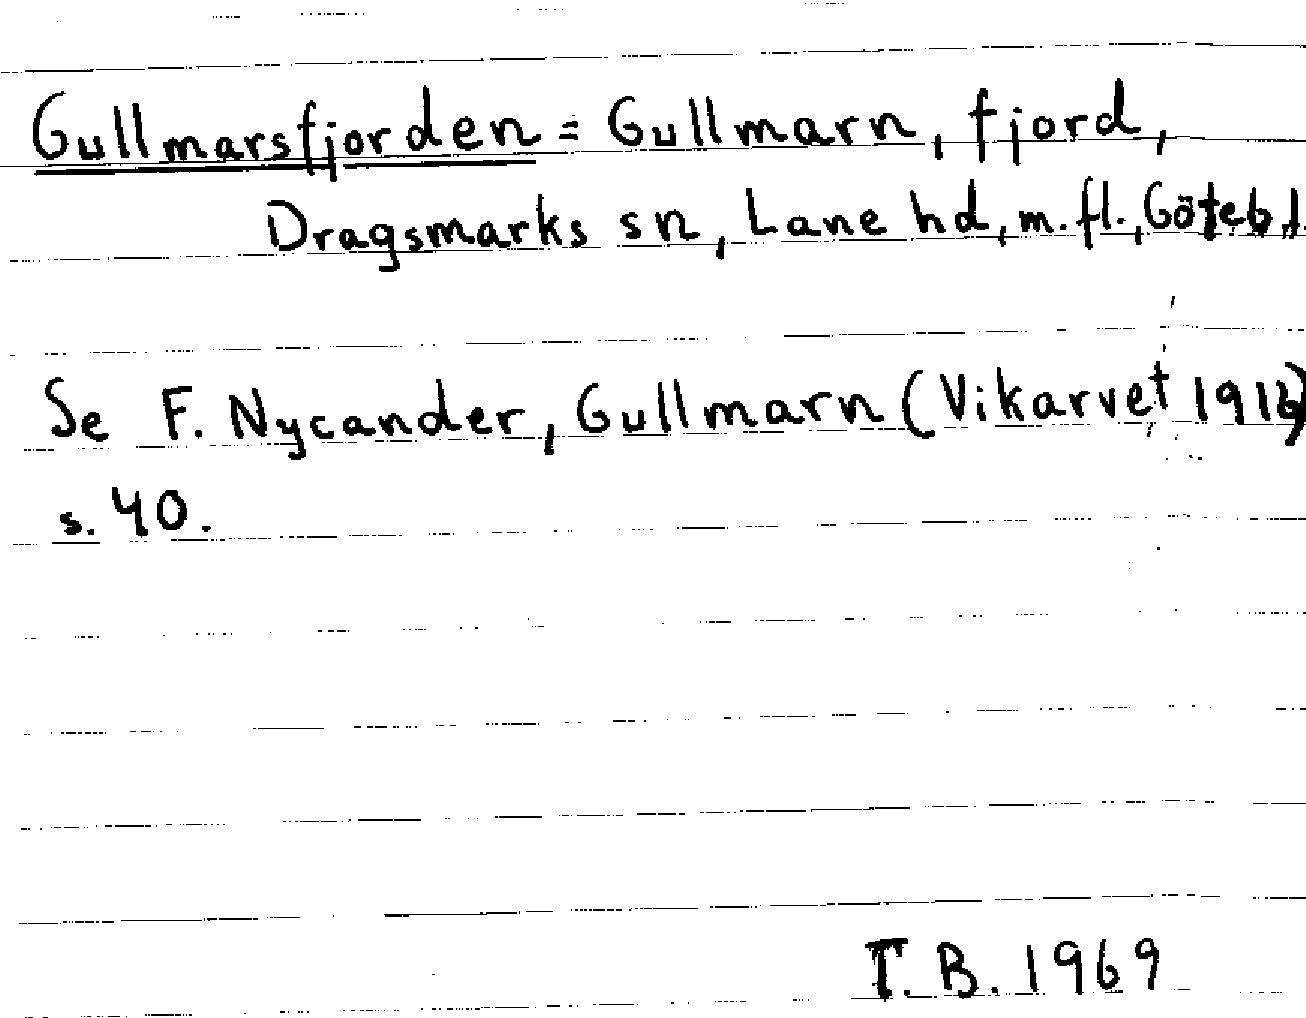 Gullmarsfjorden = Gullmarn, fjord,
Dragsmarks sn, Lane hd, m. fl., Göteb. l.
Se F. Nycander, Gullmarn (Vikarvet 1916)
s. 40.
T. B. 1969